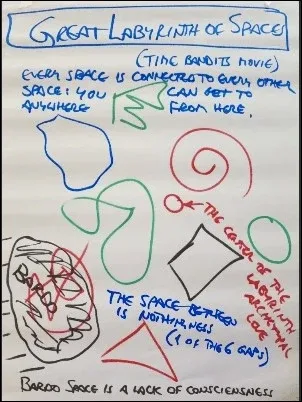 GREAT LABYRINTH OF SPACE
(TIME BANDITS MOVIE)
EVERY SPACE IS CONNECTED TO EVERY OTHER
SPACE: YOU CAN GET TO
ANYWHERE FROM HERE.
THE CENTER OF THE
LABYRINTH
ARCHETYPAL
LOVE
BARDO
THE SPACE BETWEEN
IS NOTHINGNESS
(1 OF THE 6 GAPS)
BARDO SPACE IS A LACK OF CONSCIENSNESS